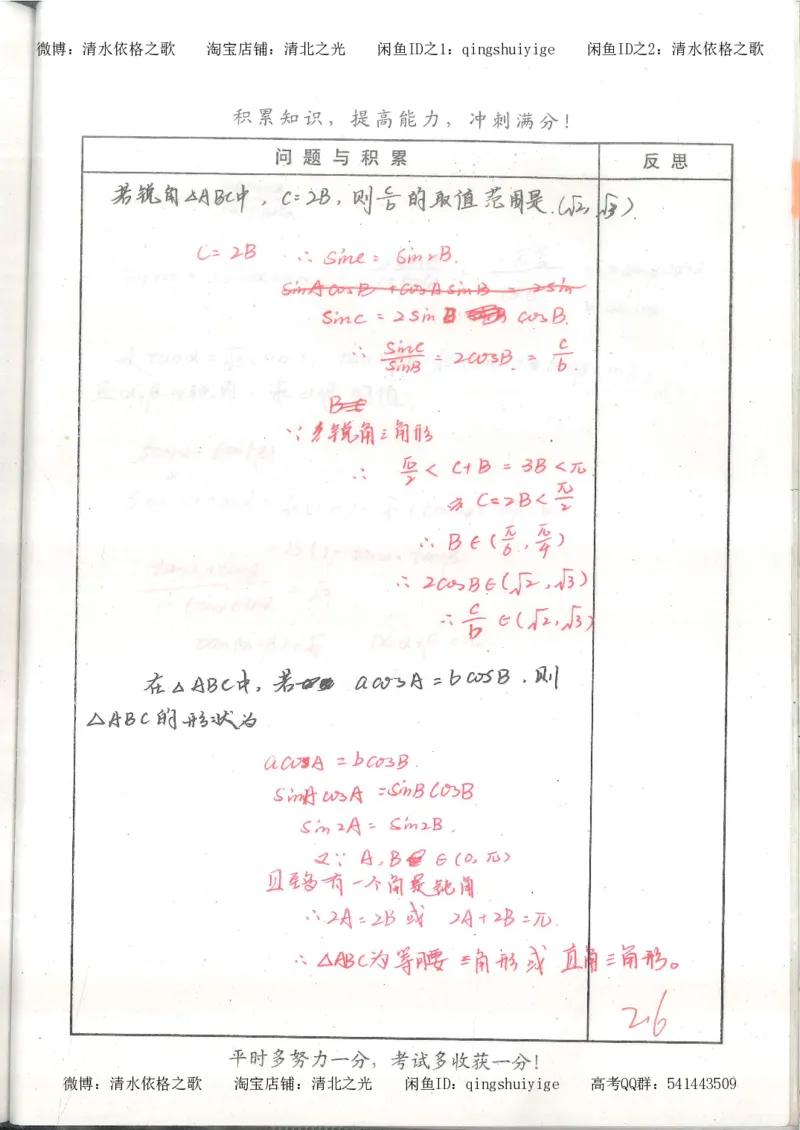 微博：清水依格之歌 淘宝店铺：清北之光 闲鱼ID之1：qingshuiyige 闲鱼ID之2：清水依格之歌
积累知识，提高能力，冲刺满分！
问题与积累 反思
若锐角△ABC中，C=2B，则c/b的取值范围是(√2,√3).
C=2B ∴ sinC = sin2B.
sinAcosB + cosAsinB = 2sin
sinC = 2sinB cosB.
∴ sinC/sinB = 2cosB. = c/b
∵ 锐角三角形
∴ π/2 < C+B = 3B < π
C=2B < π/2
∴ B∈(π/6, π/4)
∴ 2cosB∈(√2,√3)
∴ c/b ∈(√2,√3)
在△ABC中，若 acosA = bcosB，则
△ABC的形状为
acosA = bcosB.
sinAcosA = sinBcosB
sin2A = sin2B.
又∵ A,B ∈(0,π)
且至多有一个角是钝角
∴ 2A=2B 或 2A+2B=π.
∴ △ABC为等腰三角形或直角三角形。
26
平时多努力一分，考试多收获一分！
微博：清水依格之歌 淘宝店铺：清北之光 闲鱼ID：qingshuiyige 高考QQ群：541443509